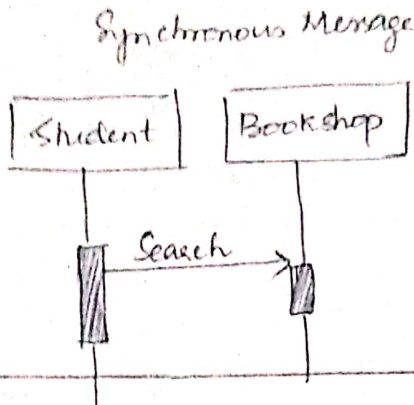 Synchronous Message
Student
Bookshop
Search